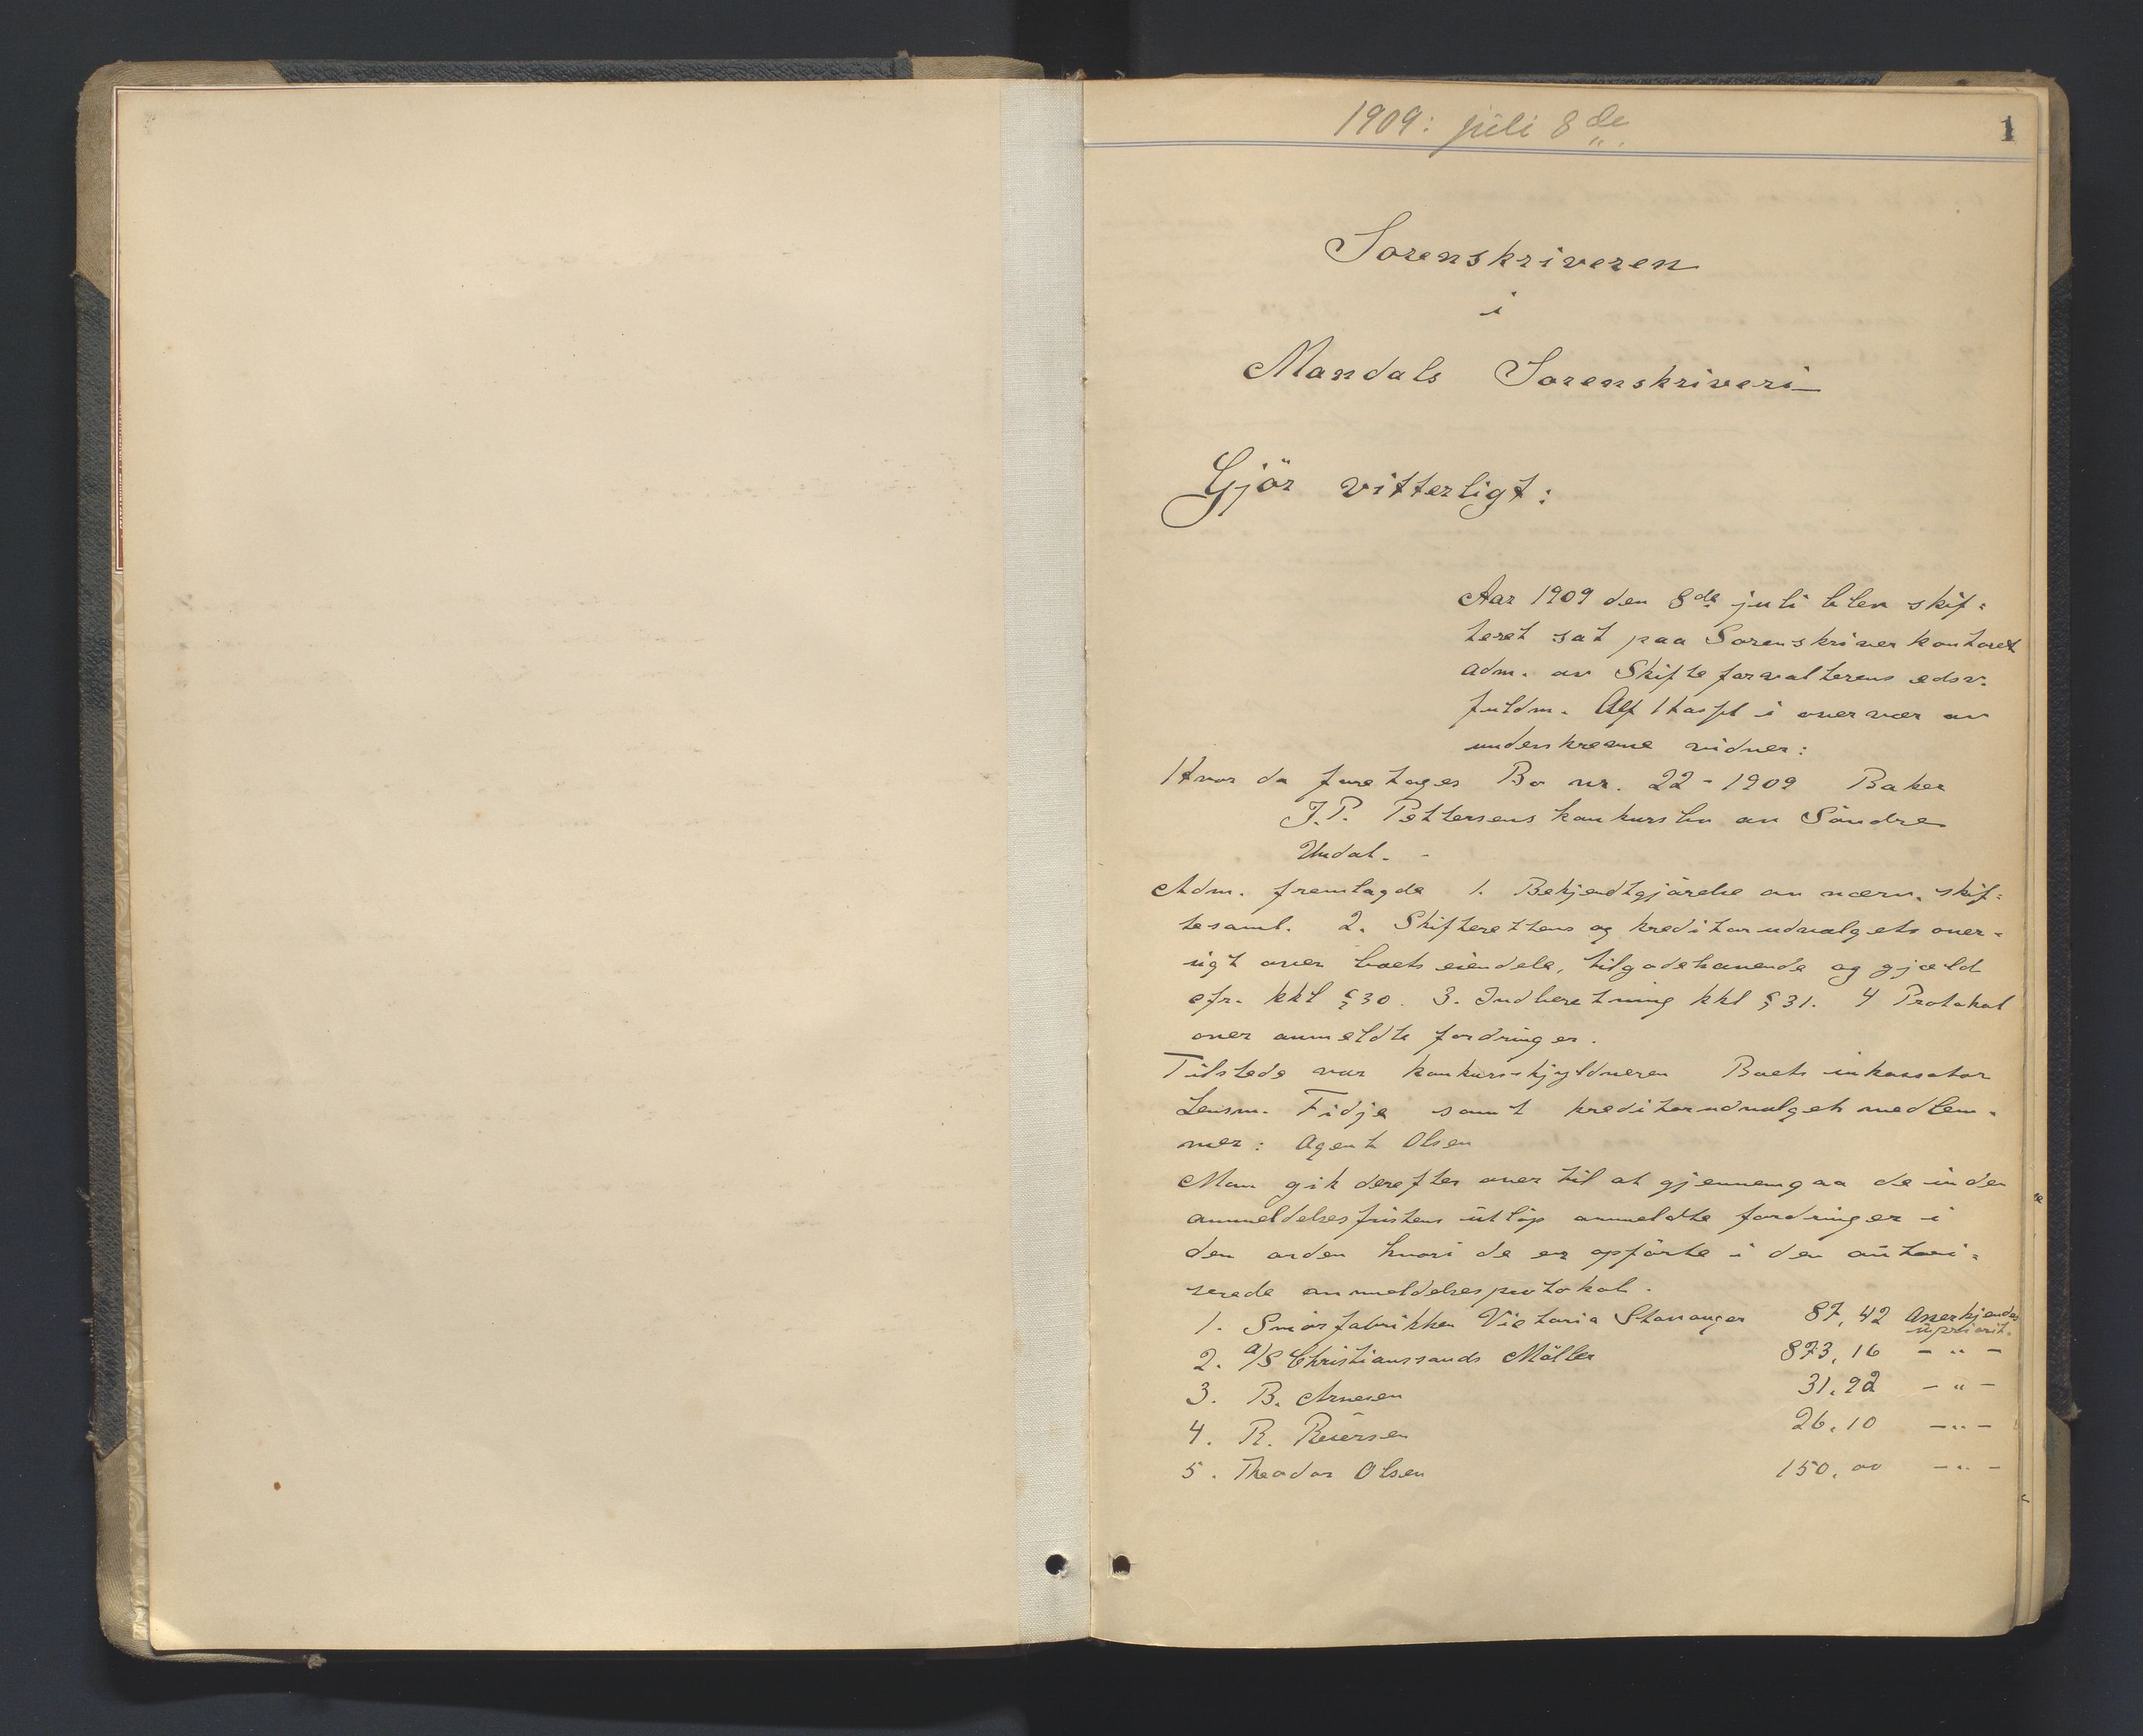 1909: juli 8de
1
Sorenskriveren
i
Mandals Sorenskriveri
Gjör vitterligt:
Aar 1909 den 8de juli blev skif=
teret sat paa Sorenskriverkontoret
adm. av Skifteforvalterens edsv.
fuldm. Alf i overvær av
underskrevne vidner:
Hvor da foretages Bo nr. 22-1909 Baker
J.P. Pettersens konkursbo av Söndre
Undal. -
Adm. fremlagde 1. Bekjendtgjörelse av nærv. skif=
tesaml. 2. Skifterettens og kreditorudvalgets over=
sigt over boets eiendele, tilgodehavende og gjæld
efr. kkl § 30. 3. Indberetning kkl § 31. 4 Protokol
over anmeldte fordringer.
Tilstede var konkursskyldneren Boets inkassator
Lensm. Fidje samt kreditorudvalgets medlem=
mer: Agent Olsen
Man gik derefter over til at gjennemgaa de inden
anmeldelsesfristens utlöp anmeldte fordringer i
den orden hvori de er opförte i den autori=
serede anmeldelsesprotokol.
1. Smörfabrikken Victoria Stavanger 87,42 Anerkjendes upriorit.
2. A/S Christianssands Möller 873,16 - " -
3. B. Arnesen 31,92 - " -
4. R. Reiersen 26,10 - " -
5. Theodor Olsen 150,00 - " -